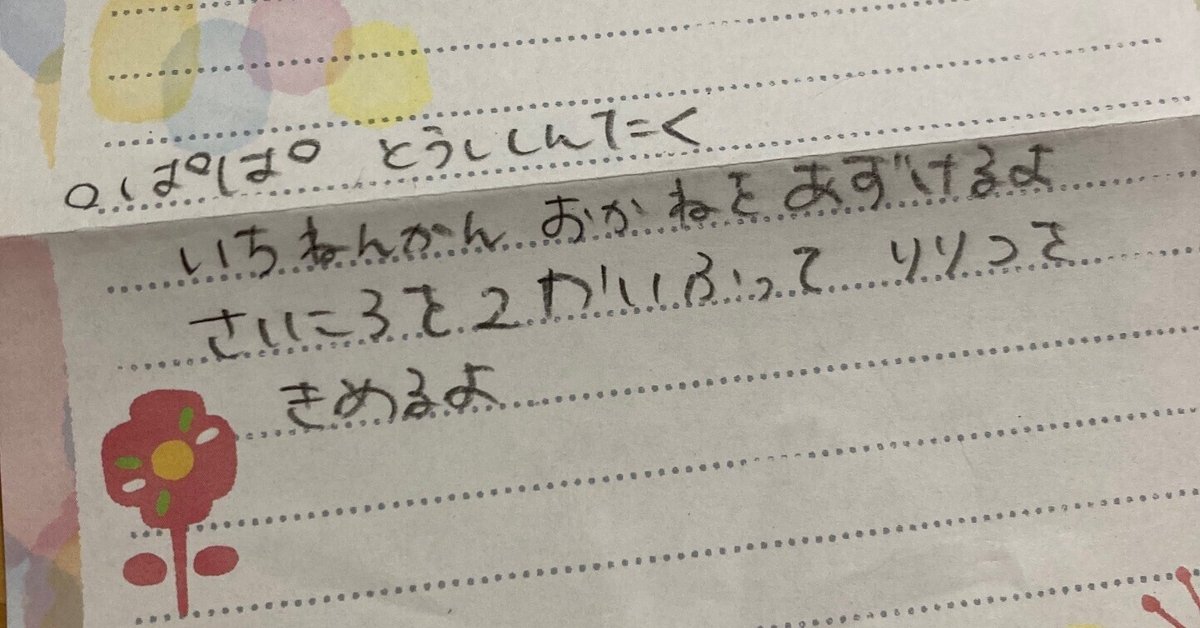 ○ ぱぱ とうししんたく
いちねんかん おかねを あずけるよ
さいころを2かいふって りりつを
きめるよ